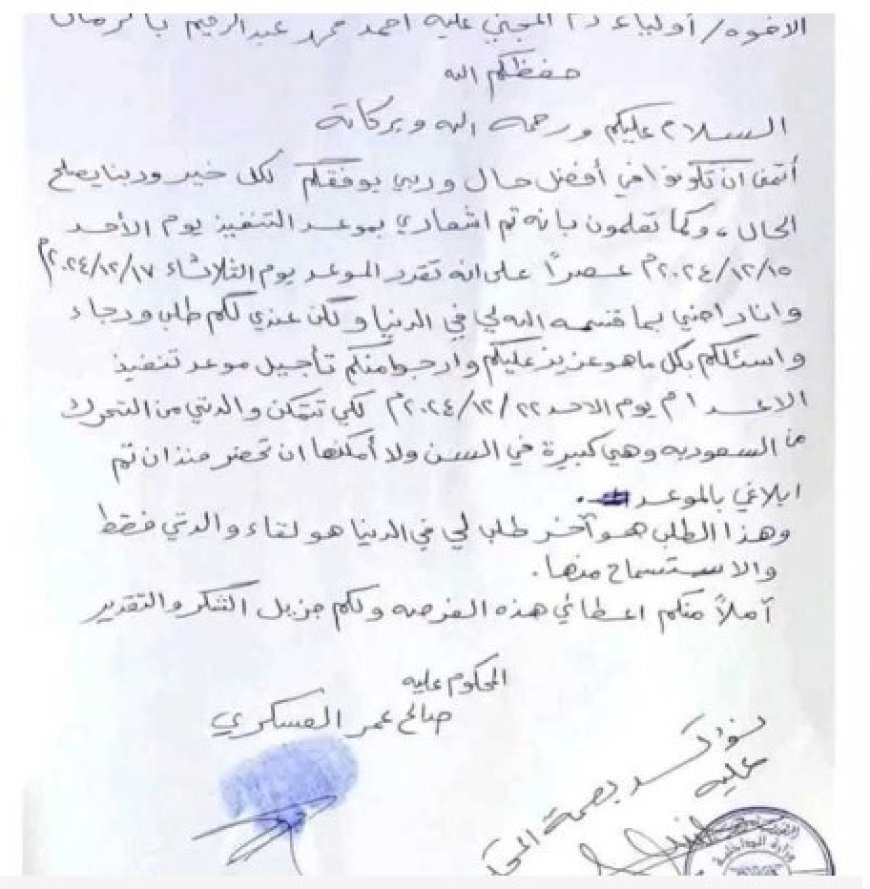 الاخوه/ أولياء دم المجني عليه احمد محمد عبدالرحيم
حفظكم الله
السلام عليكم ورحمه الله وبركاتة
أتمنى ان تكونوا في أفضل حال وربي يوفقكم لكل خير وربنا يصلح
الحال، وكما تعلمون بانه تم اشعاري بموعد التنفيذ يوم الأحد
٢٠٢٤/١٢/١٥م عصراً على انه تقرر الموعد يوم الثلاثاء ٢٠٢٤/١٢/١٧م
وانا راضي بما قسمه الله لي في الدنيا ولكن عندي لكم طلب ورجاء
واسئلكم بكل ماهو عزيز عليكم وارجوا منكم تأجيل موعد تنفيذ
الاعدام يوم الاحد ٢٠٢٤/١٢/٢٢م لكي تتمكن والدتي من التحرك
من السعوديه وهي كبيرة في السن ولا أمكنها ان تحضر منذ ان تم
ابلاغي بالموعد .
وهذا الطلب هو آخر طلب لي في الدنيا هو لقاء والدتي فقط
والاستسماح منها.
أملاً منكم اعطائي هذه الفرصه ولكم جزيل الشكر والتقدير
المحكوم عليه
صالح عمر العسكري
نؤكد بصمة
عليه
وزارة الداخلية